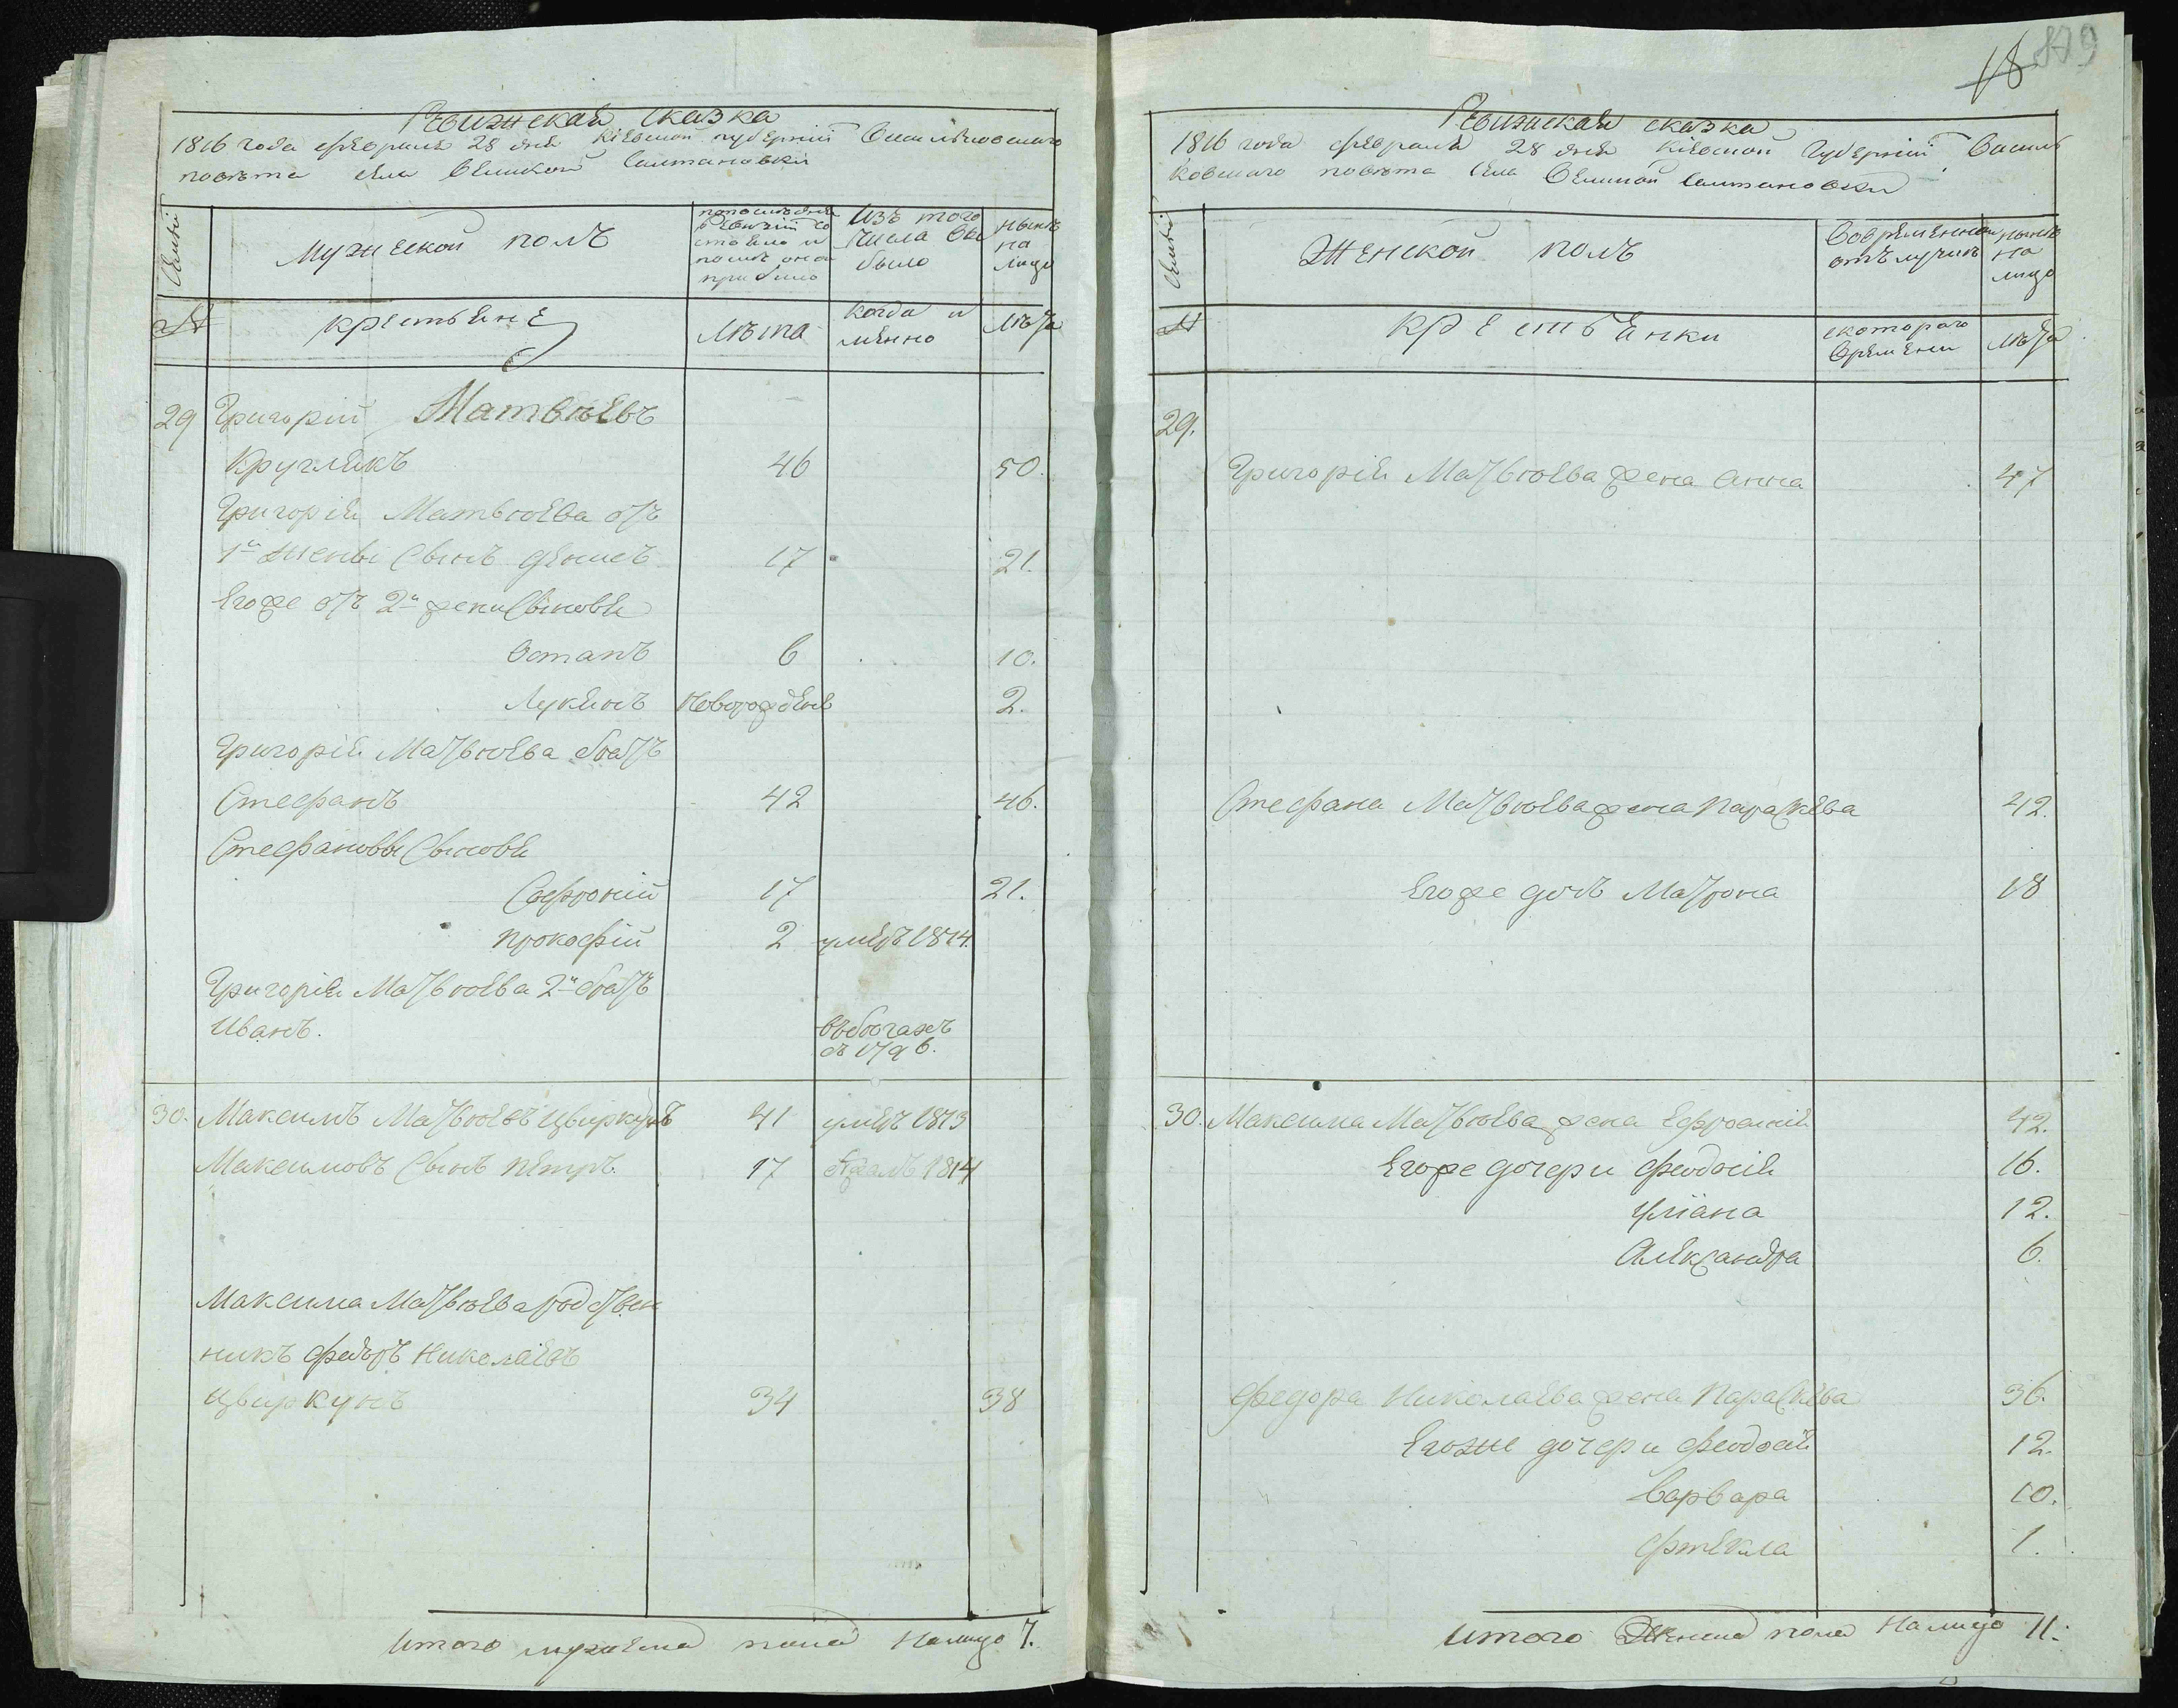 Ревижская сказка
1816 года февраля 28 дня Кіевской губерніи Василковского
повѣта села Великой Салтановки
Семьи
Мужеской полъ
по последней
ревизіи со
стояло и
после оной
прибыло
Изъ того
числа вы
было
нынѣ
на
лицо
№
крестьяне
лѣта
когда и
менно
лѣта
29 Григорій Матвѣевъ
Круглякъ 46 50.
Григорія Матвѣева отъ
1й жены сынъ Денисъ 17 21.
Егоже отъ 2й жены сыновья
Остапъ 6 10.
Лукянъ новорожденъ 2.
Григорія Матвѣева братъ
Стефанъ 42 46.
Стефановы сыновья
Софроній 17 21.
Прокофій 2 умеръ 1814.
Григорія Матвѣева 2й братъ
Иванъ. въ бегахъ
съ 1796.
30. Максимъ Матвѣевъ Цвиркунъ 41 умеръ 1813
Максимовъ сынъ Петръ. 17 1814
Максима Матвѣева родствен
никъ Федоръ Николаевъ
Цвиркунъ 34 38
Итого мужеска пола налицо 7.
18
879
Ревижская сказка
1816 года февраля 28 дня Кіевской Губерніи Василь
ковского повѣта села Великой Салтановки
Семьи
Женской полъ
Во временной
отълучкѣ
нынѣ
на
лицо
№
крестьянки
с которого
времени
лѣта
29.
Григорія Матвѣева жена Анна 47
Стефана Матвѣева жена Параскева 42.
Егоже дочь Матрона 18
30. Максима Матвѣева жена Ефросинія 42.
Егоже дочери Феодосія 16.
Уліана 12.
Александра 6.
Федора Николаева жена Параскева 36.
Егоже дочери Феодосія 12.
Варвара 10.
Фтекла 1.
Итого Женска пола налицо 11.